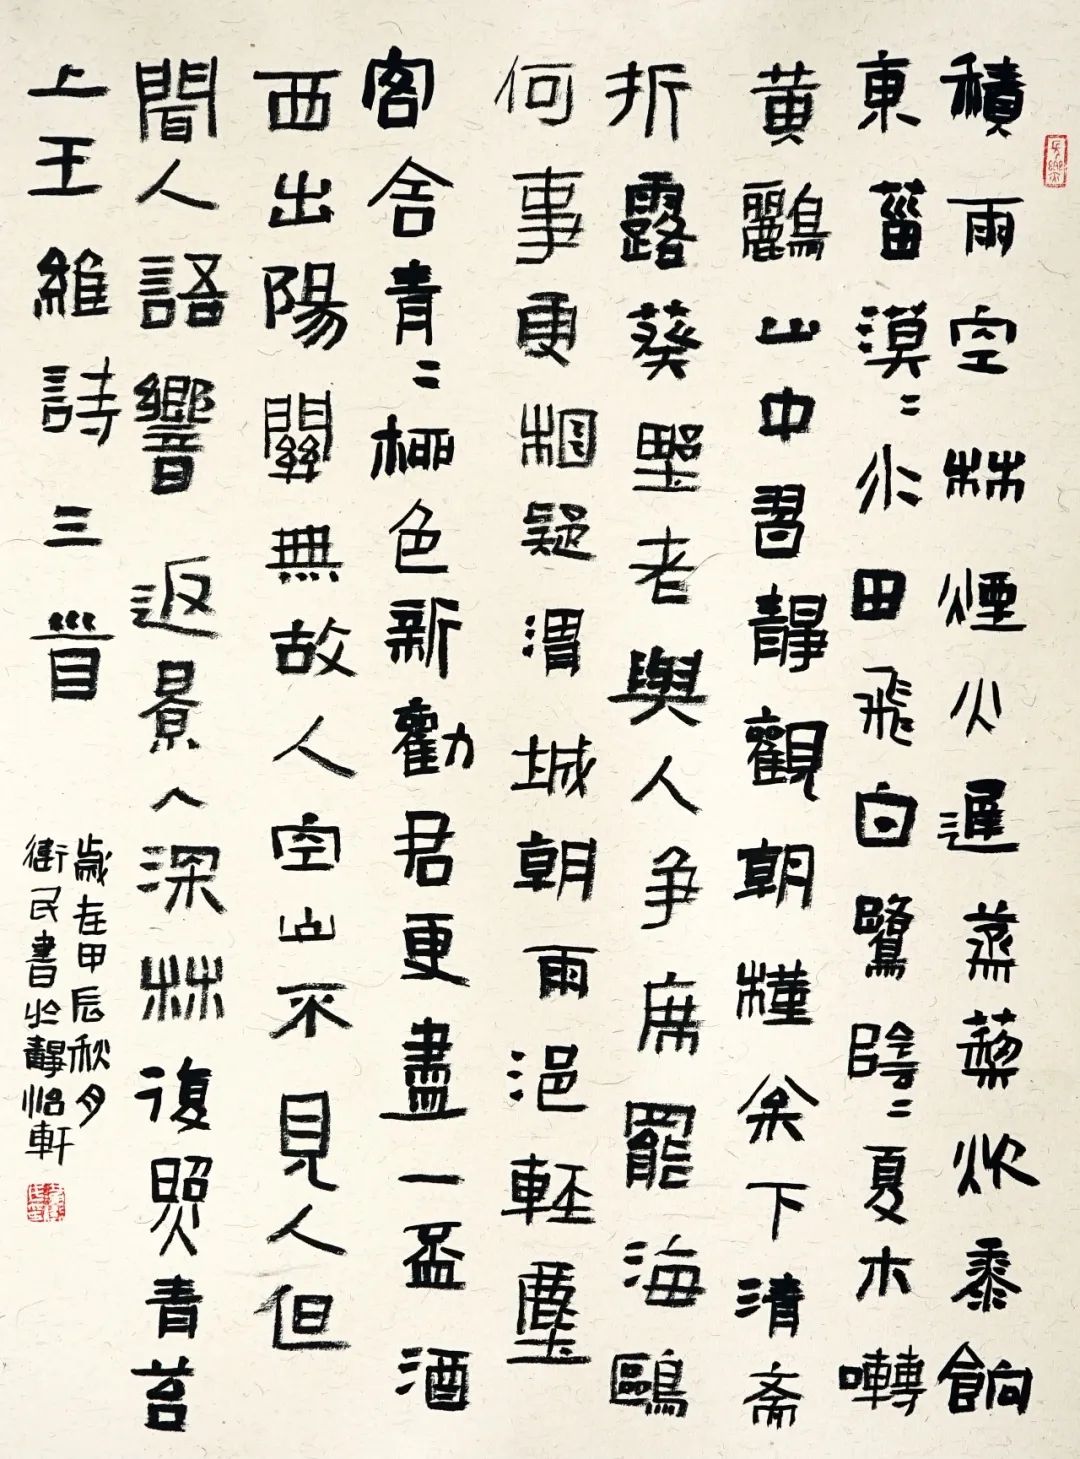 積雨空林煙火遲蒸藜炊黍餉
東菑漠﹦水田飛白鷺陰﹦夏木囀
黄鸝山中習靜觀朝槿余下清斋
折露葵野老與人争席罷海鷗
何事更相疑渭城朝雨浥輕塵
客舍青﹦柳色新勸君更盡一盃酒
西出陽關無故人空山不見人但
聞人語響返景入深林復照青苔
上王維詩三首
歲在甲辰秋月
衛民書於靜怡軒